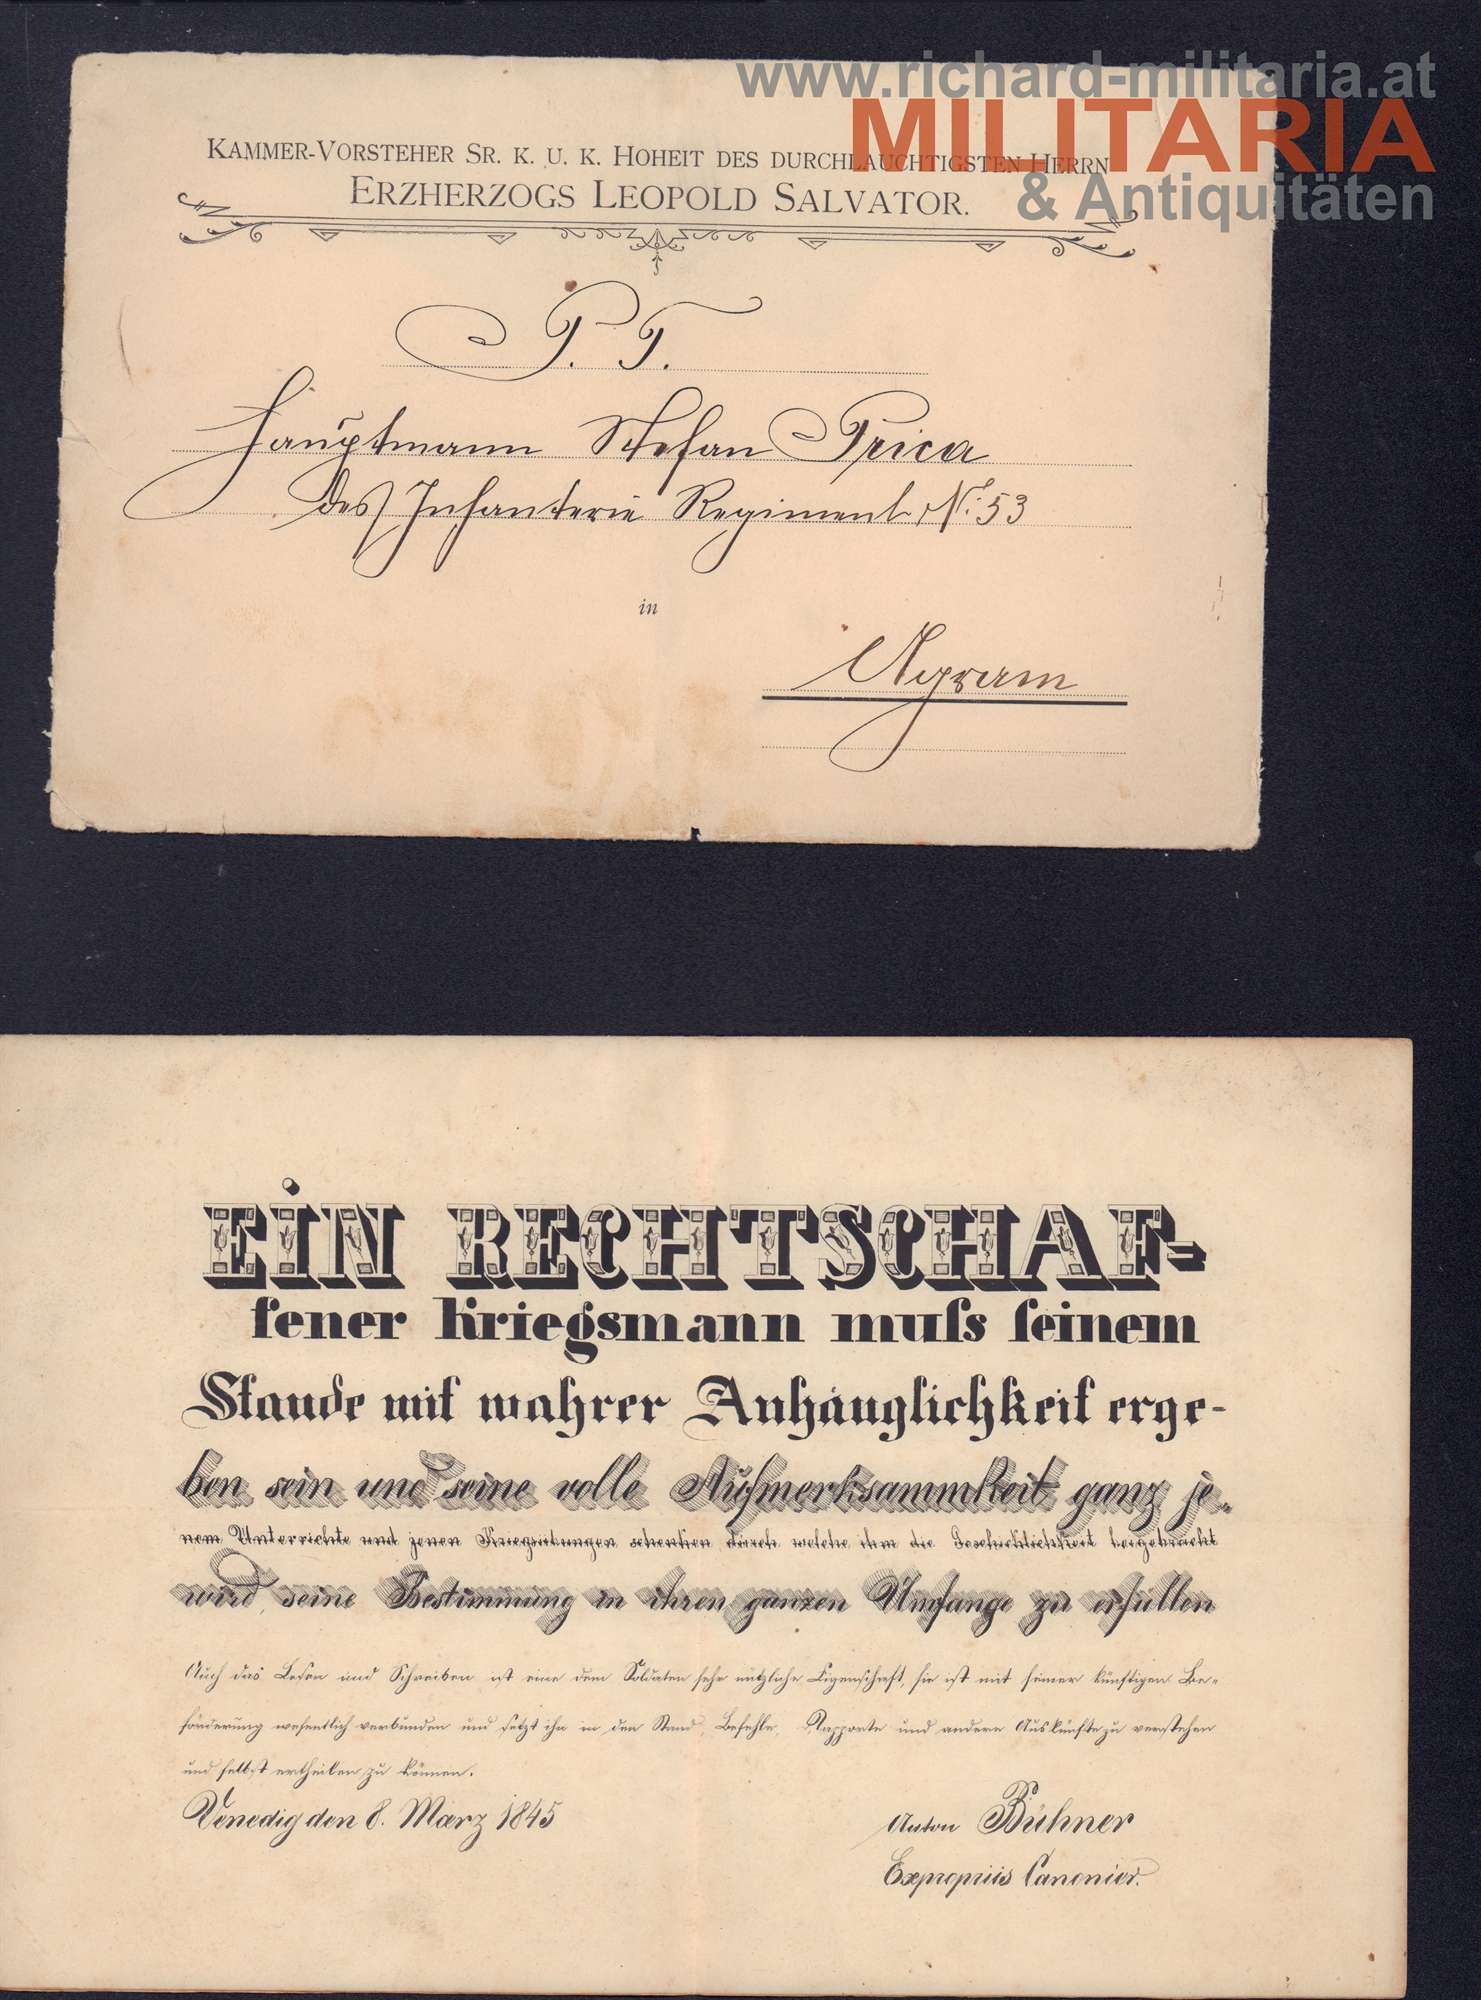 www.richard-militaria.at
MILITARIA
& Antiquitäten
KAMMER-VORSTEHER SR. K. U. K. HOHEIT DES DURCHLAUCHTIGSTEN HERRN
ERZHERZOGS LEOPOLD SALVATOR.
P. T.
Hauptmann Stefan Prica
des Infanterie Regiment N: 53
in
Agram
EIN RECHTSCHAF-
fener Kriegsmann muſs ſeinem
Stande mit wahrer Anhänglichkeit erge-
ben sein und seine volle Aufmerksammkeit ganz je-
nem Unterrichte und jenen Kriegsübungen schenken durch welche ihm die Geschicklichkeit beigebracht
wird, seine Bestimmung in ihren ganzen Umfange zu erfüllen
Auch das Lesen und Schreiben ist eine dem Soldaten sehr nützliche Eigenschaft, sie ist mit seiner künftigen Be-
förderung wesentlich verbunden und setzt ihn in den Stand, Befehle, Rapporte und andere Auskünfte zu verstehen
und selbst ertheilen zu können.
Venedig den 8. März 1845
Anton Bühner
Expropriis Canonier.